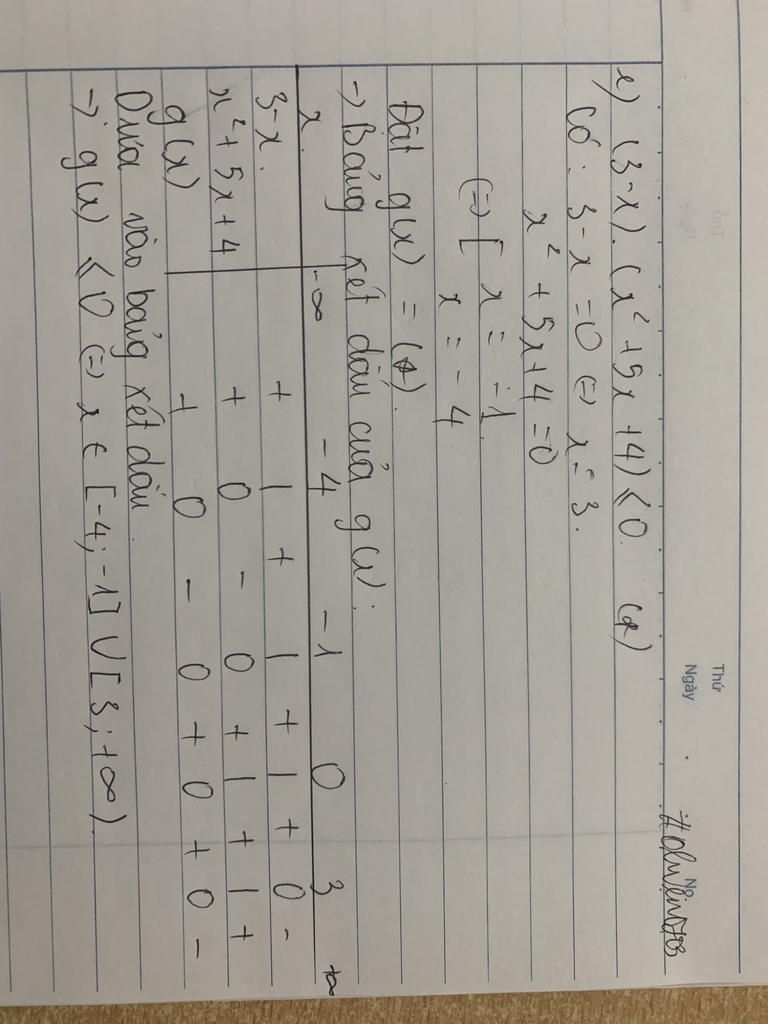 Thứ
Ngày
No.
e) (3-x).(x²+5x+4) ≤ 0. (*)
Có: 3-x = 0 (=) x = 3.
x² + 5x + 4 = 0
(=) [ x = -1
x = -4
Đặt g(x) = (*).
→ Bảng xét dấu của g(x):
x -∞ -4 -1 0 3 +∞
3-x. + | + | + | + 0 -
x² + 5x + 4 + 0 - 0 + | + | +
g(x) + 0 - 0 + 0 + 0 -
Dựa vào bảng xét dấu
→ g(x) ≤ 0 (=) x ∈ [-4; -1] ∪ [3; +∞)